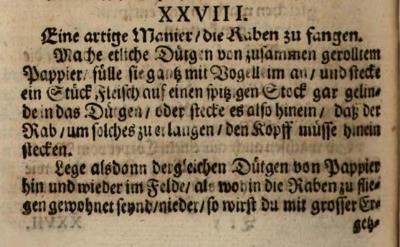 XXVIII.
Eine artige Manier / die Raben zu fangen.
Mache etliche Dütgen von zusammen gerolltem
Pappier / fülle sie gantz mit Vogelleim an / und stecke
ein Stück Fleisch auf einen spitzigen Stock gar gelin-
de in das Dütgen / oder stecke es also hinein / daß der
Rab / um solches zu erlangen / den Kopff müsse hinein
stecken.
Lege alsdann dergleichen Dütgen von Pappier
hin und wieder im Felde / als wohin die Raben zu flie-
gen gewohnet seynd / nieder / so wirst du mit grosser Er-
getz-